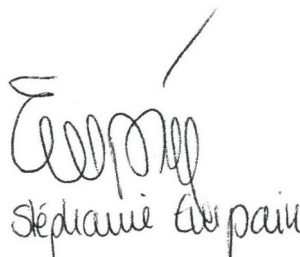 Stéphanie Empain